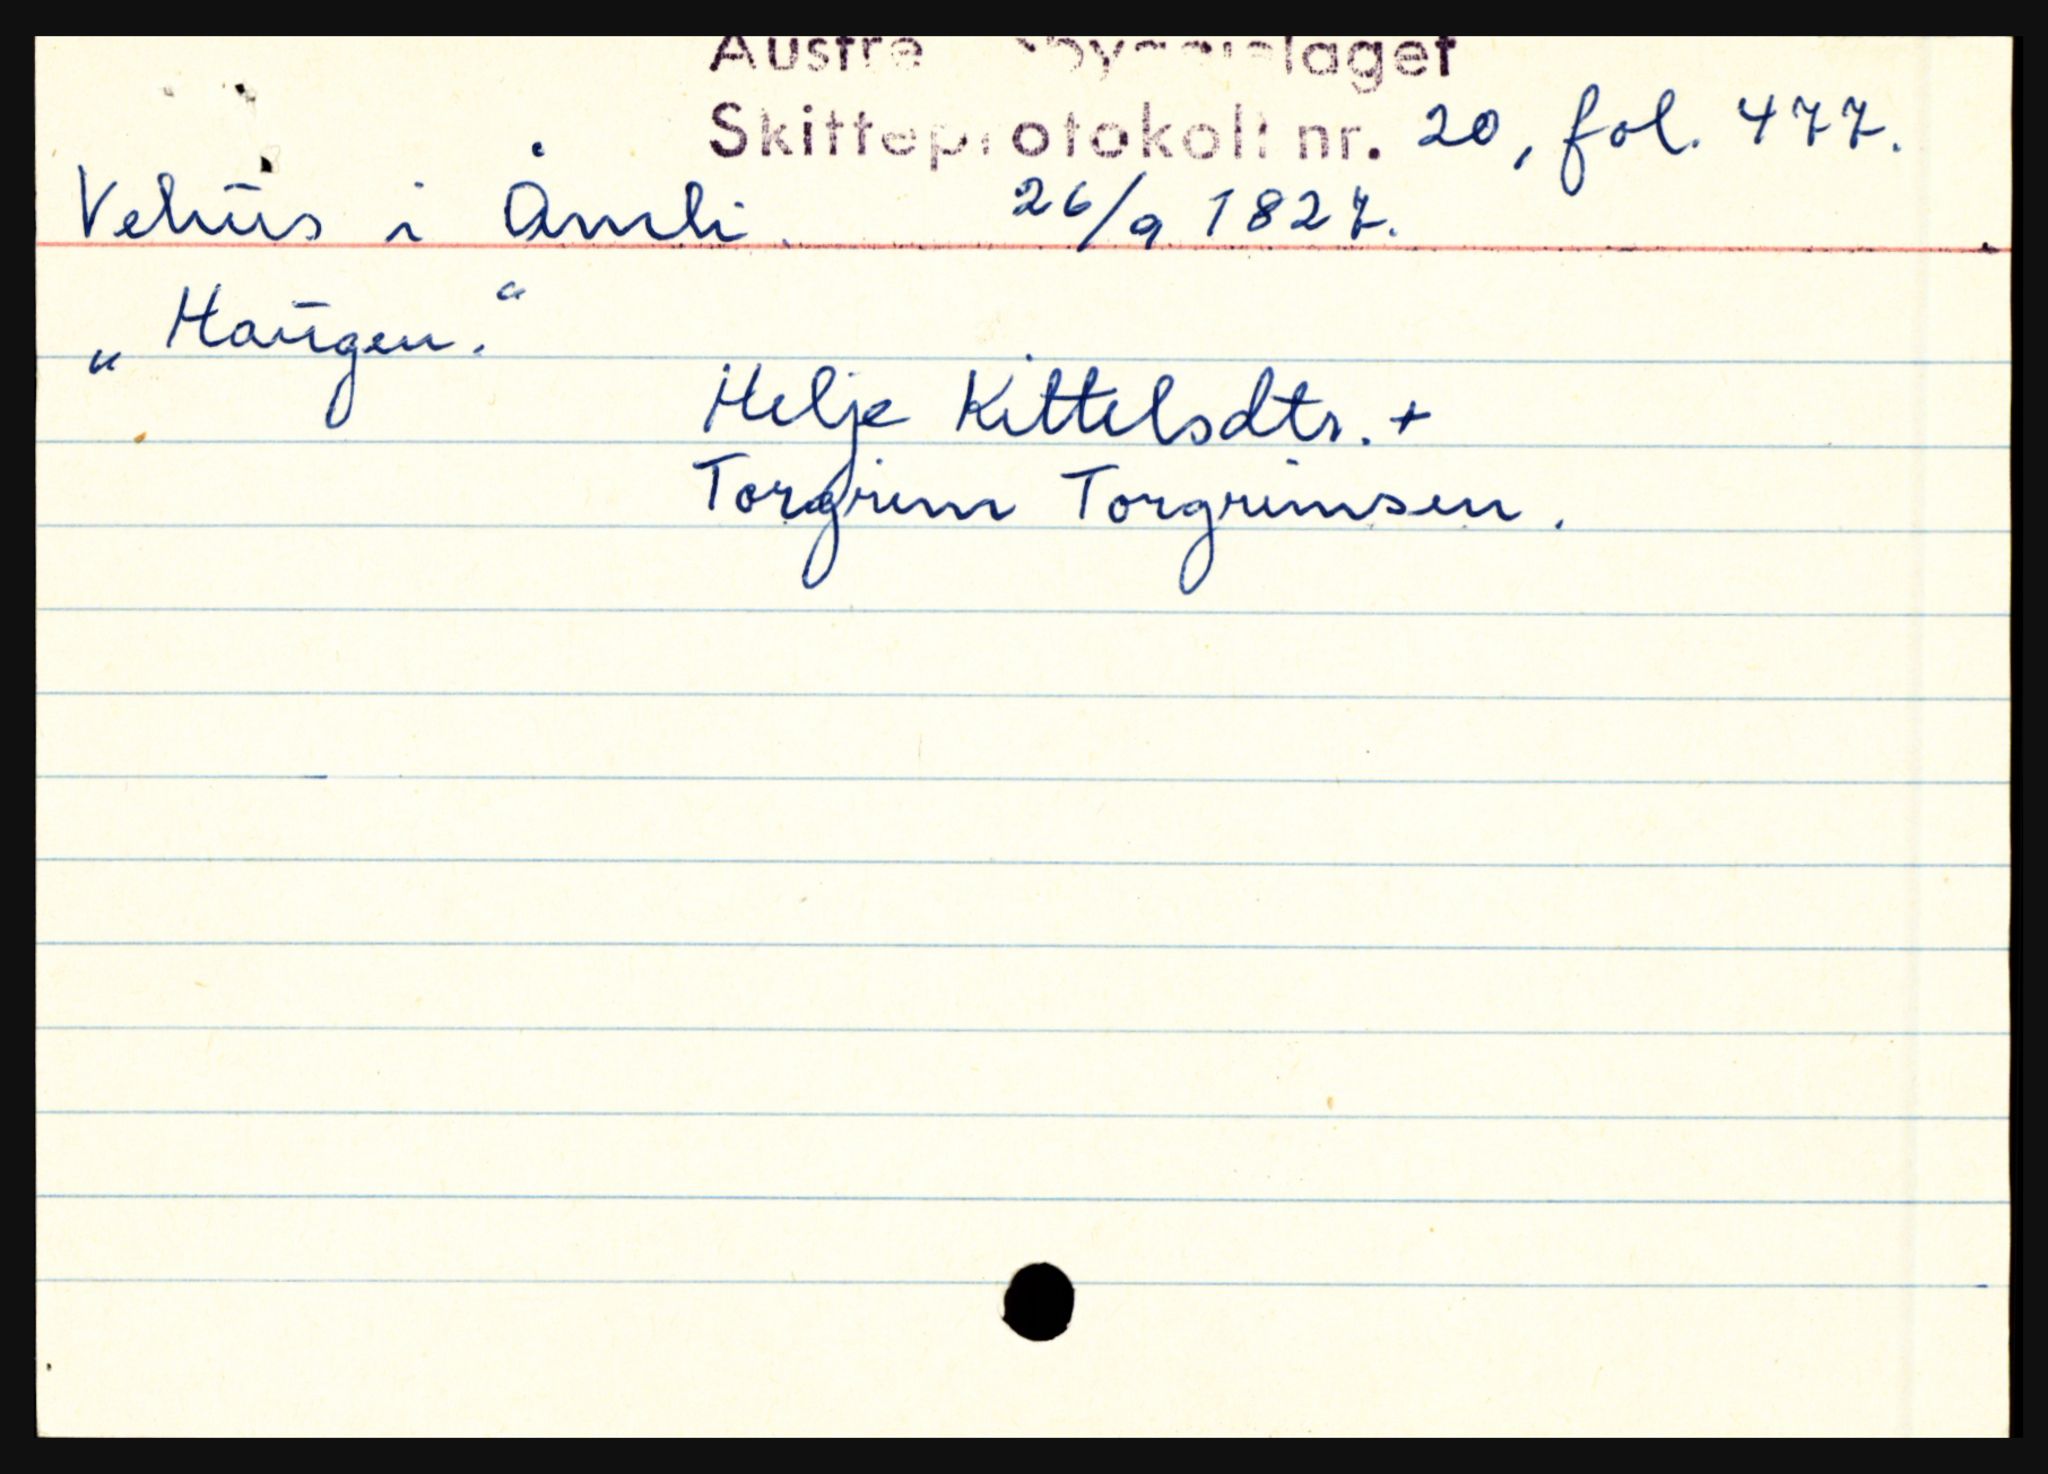 Austre
Skifteprotokoll nr. 20, fol. 477.
Vehus i Åmli 26/9 1827.
„Haugen.“
Helje Kittelsdtr. +
Torgrim Torgrimsen.